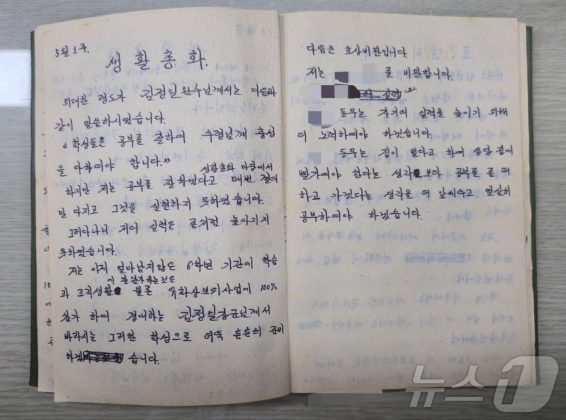 5월 1주.
생활총화.
위대한 령도자 김정일원수님께서는 다음과
같이 말씀하시였습니다.
《 학생들은 공부를 잘하여 수령님께 충성
을 다하여야 합니다.》 생활총화 마당에서
하지만 저는 공부를 잘하겠다고 매번 결의
만 다지고 그것을 실현하지 못하였습니다.
그러다나니 저의 실력은 높아지지
못하였습니다.
저는 이제 얼마남지않은 6학년 기간이 학습
과 조직생활은 물론 사업에 100%
참가 하여 경애하는 김정일장군님께서
바라시는 그러한 학생으로 더욱 튼튼히 준비
하겠습니다.
다음은 호상비판입니다.
저는 를 비판합니다.
동무는 자기의 실력을 높이기 위해
더 노력하여야 하겠습니다.
동무는 집이 멀다고 하여 집에
빨리가야 한다는 생각보다 공부를 꼭 더
하고 가겠다는 생각을 더 앞세우고 열심히
공부하여야 하겠습니다.
뉴스1